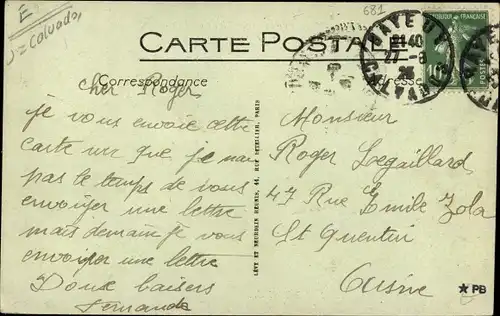 E
Calvados
681
CARTE POSTALE
Correspondance
Adresse
RÉPUBLIQUE FRANÇAISE
POSTES
21 40
27 - 8
cher Roger
je vous envoie cette
carte vu que je n'ai
pas le temps de vous
envoyer une lettre
mais demain je vous
envoyer une lettre
Doux baisers
Fernande
LÉVY ET NEURDEIN RÉUNIS, 44, RUE LETELLIER, PARIS
Monsieur
Roger Legaillard
47 Rue Emile Zola
St Quentin
Aisne
★ PB